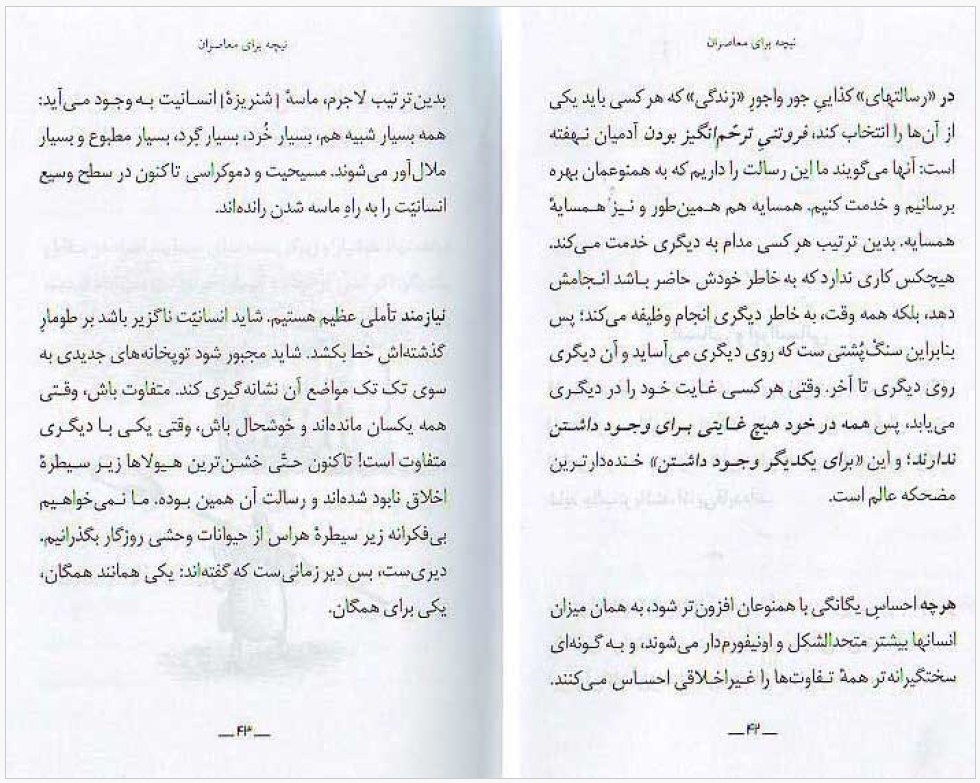 نیچه برای معاصران
در «رسالتهای» کذاییِ جور واجورِ «زندگی» که هر کسی باید یکی
از آن‌ها را انتخاب کند، فروتنیِ ترحّم‌انگیز بودن آدمیان نهفته
است: آنها می‌گویند ما این رسالت را داریم که به همنوعمان بهره
برسانیم و خدمت کنیم. همسایه هم همین‌طور و نیز همسایهٔ
همسایه. بدین ترتیب هر کسی مدام به دیگری خدمت می‌کند.
هیچکس کاری ندارد که به خاطر خودش حاضر باشد انجامش
دهد، بلکه همه وقت، به خاطر دیگری انجام وظیفه می‌کند؛ پس
بنابراین سنگ‌پُشتی ست که روی دیگری می‌آساید و آن دیگری
روی دیگری تا آخر. وقتی هر کسی غایت خود را در دیگری
می‌یابد، پس همه در خود هیچ غایتی برای وجود داشتن
ندارند؛ و این «برای یکدیگر وجود داشتن» خنده‌دارترین
مضحکه عالم است.
هرچه احساسِ یگانگی با همنوعان افزون‌تر شود، به همان میزان
انسانها بیشتر متحدالشکل و اونیفورم‌دار می‌شوند، و به گونه‌ای
سختگیرانه‌تر همهٔ تفاوت‌ها را غیراخلاقی احساس می‌کنند.
ــ ۴۲ ــ
نیچه برای معاصران
بدین‌ترتیب لاجرم، ماسهٔ [شنریزهٔ] انسانیت به وجود می‌آید:
همه بسیار شبیه هم، بسیار خُرد، بسیار گِرد، بسیار مطبوع و بسیار
ملال‌آور می‌شوند. مسیحیت و دموکراسی تاکنون در سطح وسیع
انسانیّت را به راهِ ماسه شدن رانده‌اند.
نیازمند تأملی عظیم هستیم. شاید انسانیّت ناگزیر باشد بر طومارِ
گذشته‌اش خط بکشد. شاید مجبور شود توپخانه‌های جدیدی به
سوی تک تک مواضع آن نشانه‌گیری کند. متفاوت باش، وقتی
همه یکسان مانده‌اند و خوشحال باش، وقتی یکی با دیگری
متفاوت است! تاکنون حتّی خشن‌ترین هیولاها زیر سیطرهٔ
اخلاق نابود شده‌اند و رسالت آن همین بوده. ما نمی‌خواهیم
بی‌فکرانه زیر سیطرهٔ هراس از حیوانات وحشی روزگار بگذرانیم.
دیری‌ست، بس دیر زمانی‌ست که گفته‌اند: یکی همانند همگان،
یکی برای همگان.
ــ ۴۳ ــ